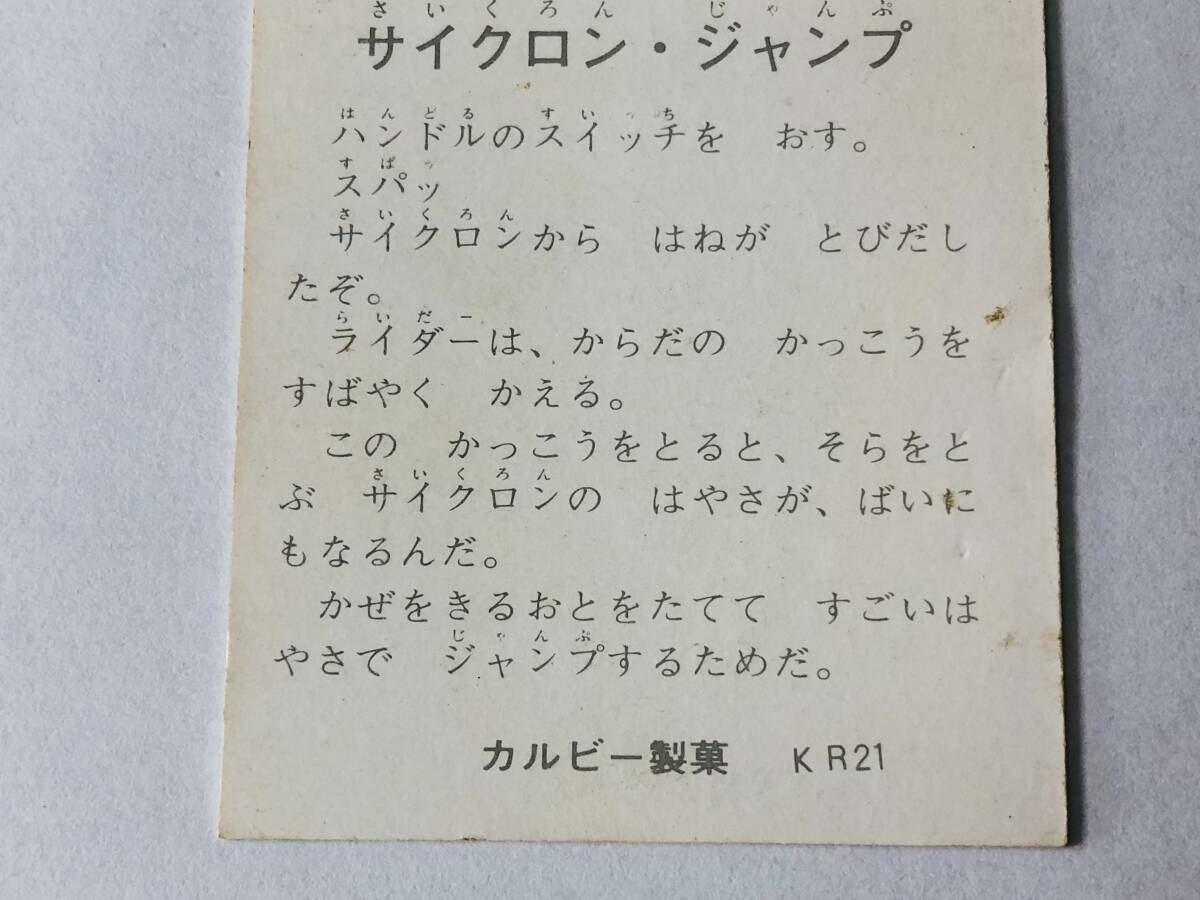 さいくろん じゃんぷ
サイクロン・ジャンプ
はんどる すいっち
ハンドルのスイッチを おす。
すぱっ
スパッ
さいくろん
サイクロンから はねが とびだし
たぞ。
らいだー
ライダーは、からだの かっこうを
すばやく かえる。
この かっこうをとると、そらをと
さいくろん
ぶ サイクロンの はやさが、ばいに
もなるんだ。
かぜをきるおとをたてて すごいは
じゃんぷ
やさで ジャンプするためだ。
カルビー製菓 KR21